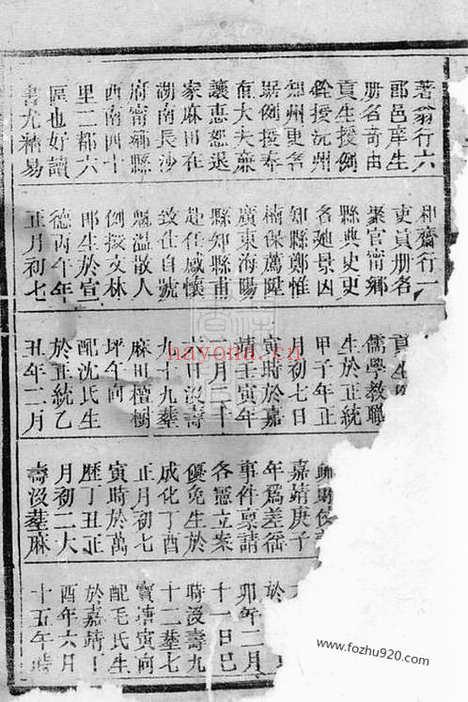 著翁行六
郡邑庠生
册名奇由
貢生援例
銓授沅州
知州更名
㨿例授奉
直大夫蘼
讓恵恕退
家麻田在
湖南長沙
府甯鄉縣
西南四十
里二都六
區也好讀
書尤精易
和齋行一
吏員册名
聚官甯鄉
縣典史更
名廸景因
知縣鄭惟
楠保薦陞
廣東海陽
縣知縣甫
赴任感懷
致仕自號
飄溫散人
例授文林
郎生於宣
德丙午年
正月初七
貢生
儒學教職
生於正統
甲子年正
月初七日
寅時於嘉
靖壬寅年
二月二十
日沒壽
九十九塟
麻田檀樹
坪午向
配沈氏生
於正統乙
丑年二月
嘉靖庚子
年爲差徭
事件稟請
各憲立案
優免生於
成化丁酉
正月初七
寅時於萬
歷丁丑正
月初二大
壽沒塟麻
於
卯年二月
十一日巳
時沒壽九
十二塟七
寳塘寅向
配毛氏生
於嘉靖丁
酉年六月
十五午時
hayona.cn
www.fozhu920.com